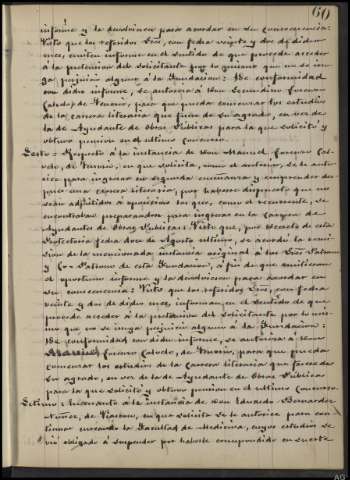 60
informe y la devolvieran para acordar en su consecuencia:
Visto que los referidos Sres, con fecha veinte y dos de dicho
mes, emiten informe en el sentido de que procede acceder
á la pretension del solicitante por lo mismo que no se irro-
ga perjuicio alguno á la Fundacion: De conformidad
con dicho informe, se autoriza á Don Secundino Forcar
Calvelo, de Tenorio, para que pueda comenzar los estudios
de la carrera literaria que fuere de su agrado, en vez de la
de Ayudante de Obras Públicas para la que solicitó y
obtuvo pension en el ultimo concurso.
Sexto = Dispuesto á la instancia de Don Manuel Forcar Cal-
velo, de Tenorio, en que solicita, como el anterior, se le auto-
rice para ingresar en segunda enseñanza y emprender des-
pues una carrera literaria, por haberse dispuesto que no
sean admitidos á oposicion los que, como el recurrente, se
encontraban preparandose para ingresar en la Carrera de
Ayudantes de Obras Públicas: Visto que, por decreto de esta
Protectoria fecha doce de Agosto ultimo, se acordó la remi-
sion de la mencionada instancia original á los Sres Patrono
y Co-Patrono de esta Fundacion, á fin de que emitieran
el oportuno informe y la devolvieran para acordar en
su consecuencia: Visto que los referidos Sres, con fecha
veinte y dos de dicho mes, informan en el sentido de que
procede acceder á la pretension del solicitante por lo mis-
mo que no se irroga perjuicio alguno á la Fundacion:
De conformidad con dicho informe, se autoriza á Don
Manuel Forcar Calvelo, de Tenorio, para que pueda
comenzar los estudios de la carrera literaria que fuere de
su agrado, en vez de la de Ayudante de Obras Públicas
para la que solicitó y obtuvo pension en el ultimo concurso
Setimo = á la instancia de Don Eduardo Bernardez
Nuñez, de Viascon, en que solicita se le autorice para con-
tinuar cursando la Facultad de Medicina, cuyos estudios se
vió obligado á suspender por haberle correspondido en suerte